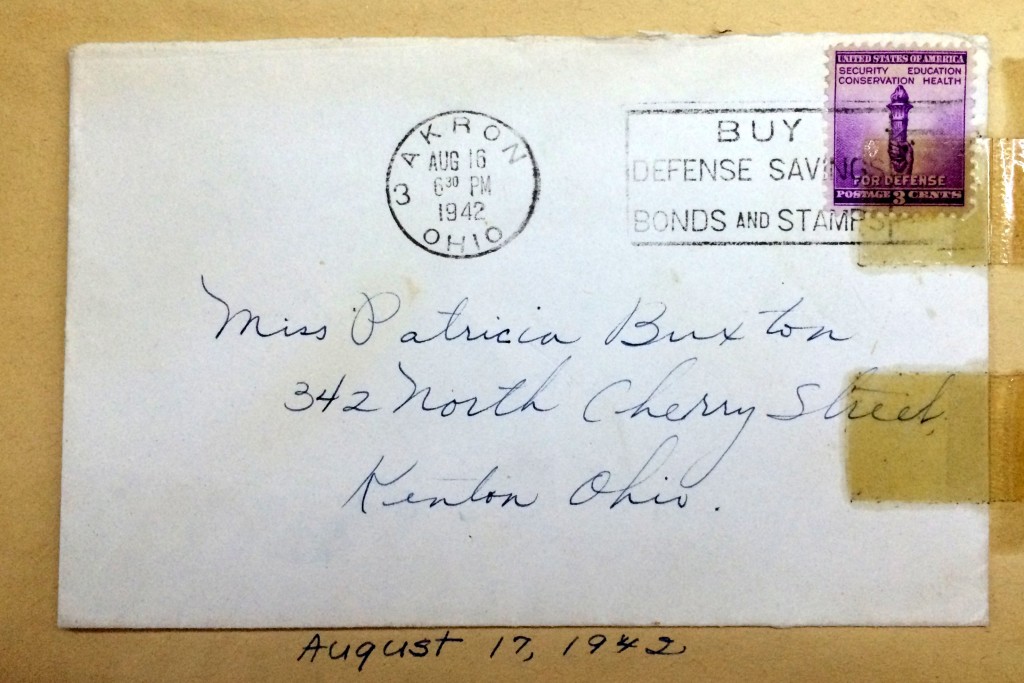 UNITED STATES OF AMERICA
SECURITY EDUCATION
CONSERVATION HEALTH
FOR DEFENSE
POSTAGE 3 CENTS
AKRON
AUG 16
6 30 PM
1942
3
OHIO
BUY
DEFENSE SAVINGS
BONDS AND STAMPS
Miss Patricia Buxton
342 North Cherry Street
Kenton Ohio.
August 17, 1942